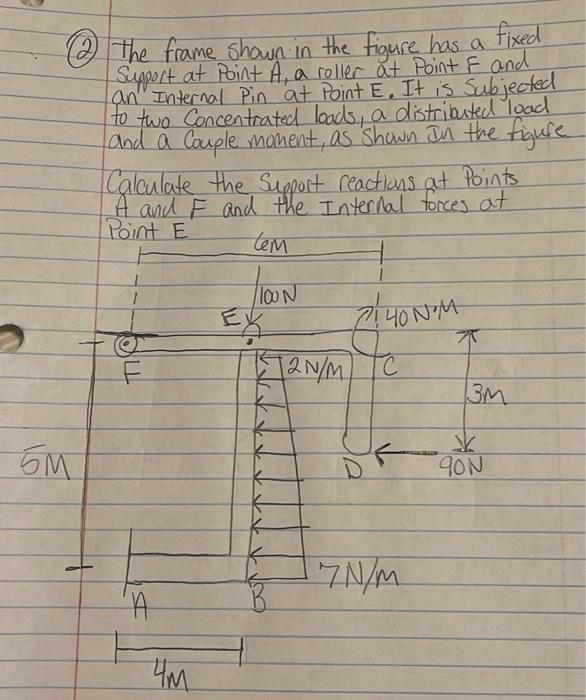 ② The frame shown in the figure has a fixed
Support at Point A, a roller at Point F and
an Internal Pin at Point E. It is Subjected
to two Concentrated loads, a distributed load
and a Couple moment, as Shown In the figure
Calculate the Support reactions at Points
A and F and the Internal forces at
Point E
6M
100N
E
40 N·M
F
2N/M
C
3M
5M
D
90N
7N/M
A
B
4M